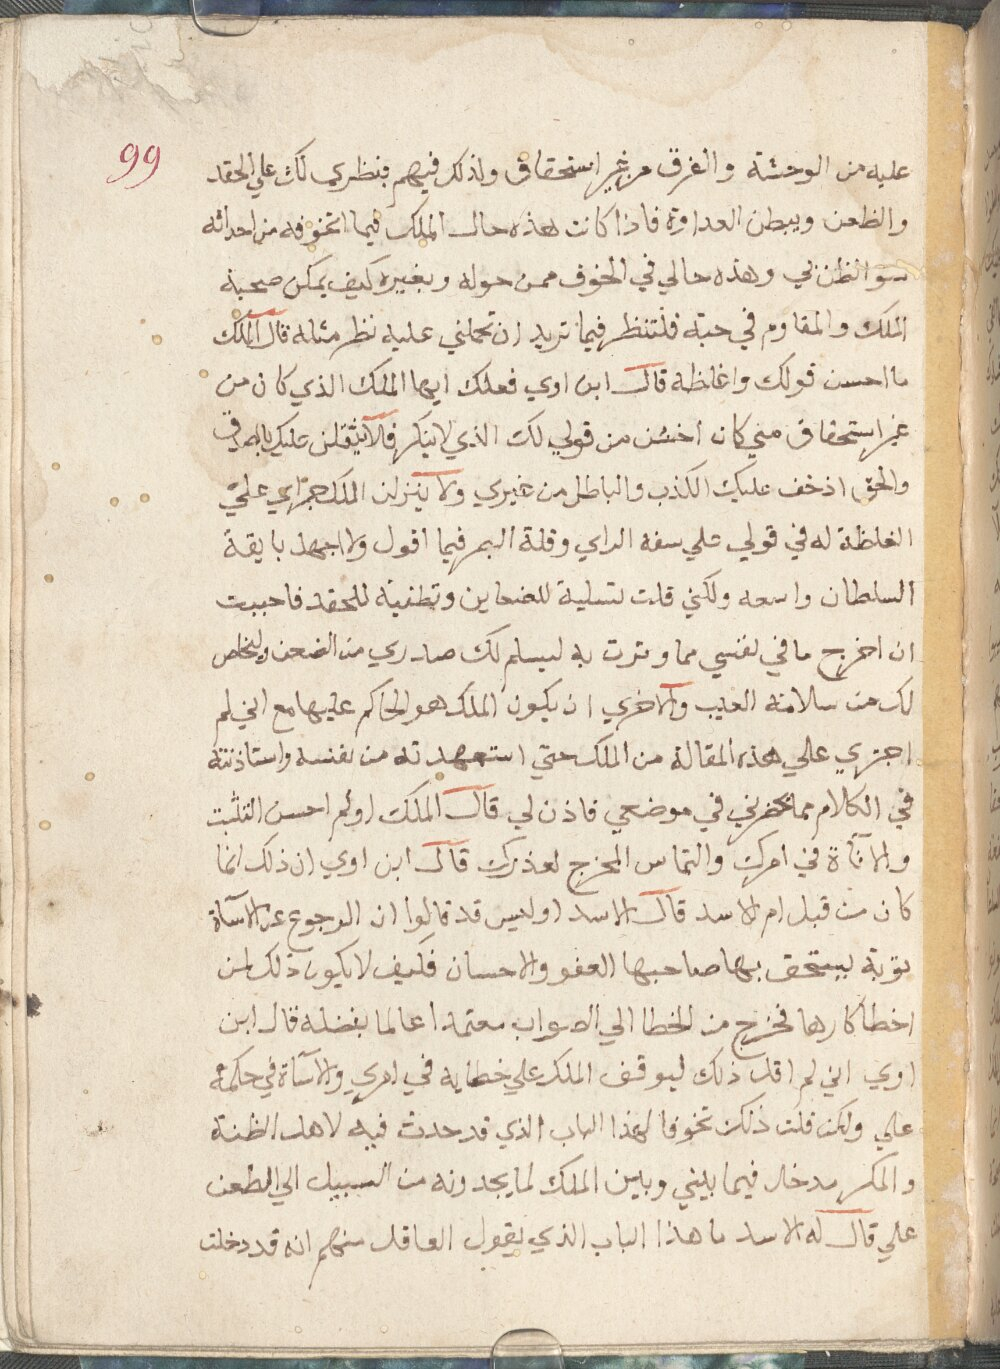 99
عليه من الوحشة والغرق من غير استحقاق ولذلك فيهم ينظري لك علي الحقد
والظعن ويبطن العداوة فاذا كانت هذه حال الملك فيما اتخوفه من احداثه
سو الظن بي وهذه حالي في الخوف ممن حوله وبغيره كيف يمكن صحبة
الملك والمقاوم في حبة فلتنظر فيما تريد ان تحملني عليه نظر مثله قال الملك
ما احسن قولك واغلظه قال ابن اوي فعلك ايها الملك الذي كان من
غير استحقاق مني كان اخشن من قولي لك الذي لا ينكر فلا يثقلن عليك بالصدق
والحق اذ خف عليك الكذب والباطل من غيري ولا ينزلن الملك جراي علي
الغلظة له في قولي علي سفه الراي وقلة البهر فيما اقول ولا اجهل بايقة
السلطان واسعه ولكني قلت لتسلية للضعاين وتطفية للحقد فاحببت
ان اخرج ما في نفسي مما وترت به ليسلم لك صدري من الضعن وليخلص
لك من سلامته الغيب والاخري ان يكون الملك هو الحاكم عليها مع اني لم
اجتري علي هذه المقالة من الملك حتي استعهدته من نفسه واستاذنته
في الكلام مما يحضرني في موضعي فاذن لي قال الملك اولم احسن التثبت
والاناة في امرك والتماس المخرج لعذرك قال ابن اوي ان ذلك انما
كان من قبل ام الاسد قال الاسد اوليس قد قالوا ان الرجوع عن الاساة
توبة يستحق بها صاحبها العفو والاحسان فكيف لا يكون ذلك لمن
اخطا كارها فخرج من الخطا الي الصواب معتمدا عالما بفضله قال ابن
اوي اني لم اقل ذلك ليوقف الملك علي خطايه في امري والاساة في حكمه
علي ولكن قلت ذلك تخوفا لهذا الباب الذي قد حدث فيه لاهل الظنة
والمكر مدخل فيما بيني وبين الملك لما يجدونه من السبيل الي الطعن
علي قال له الاسد ما هذا الباب الذي يقول العاقل منهم انه قد دخلت